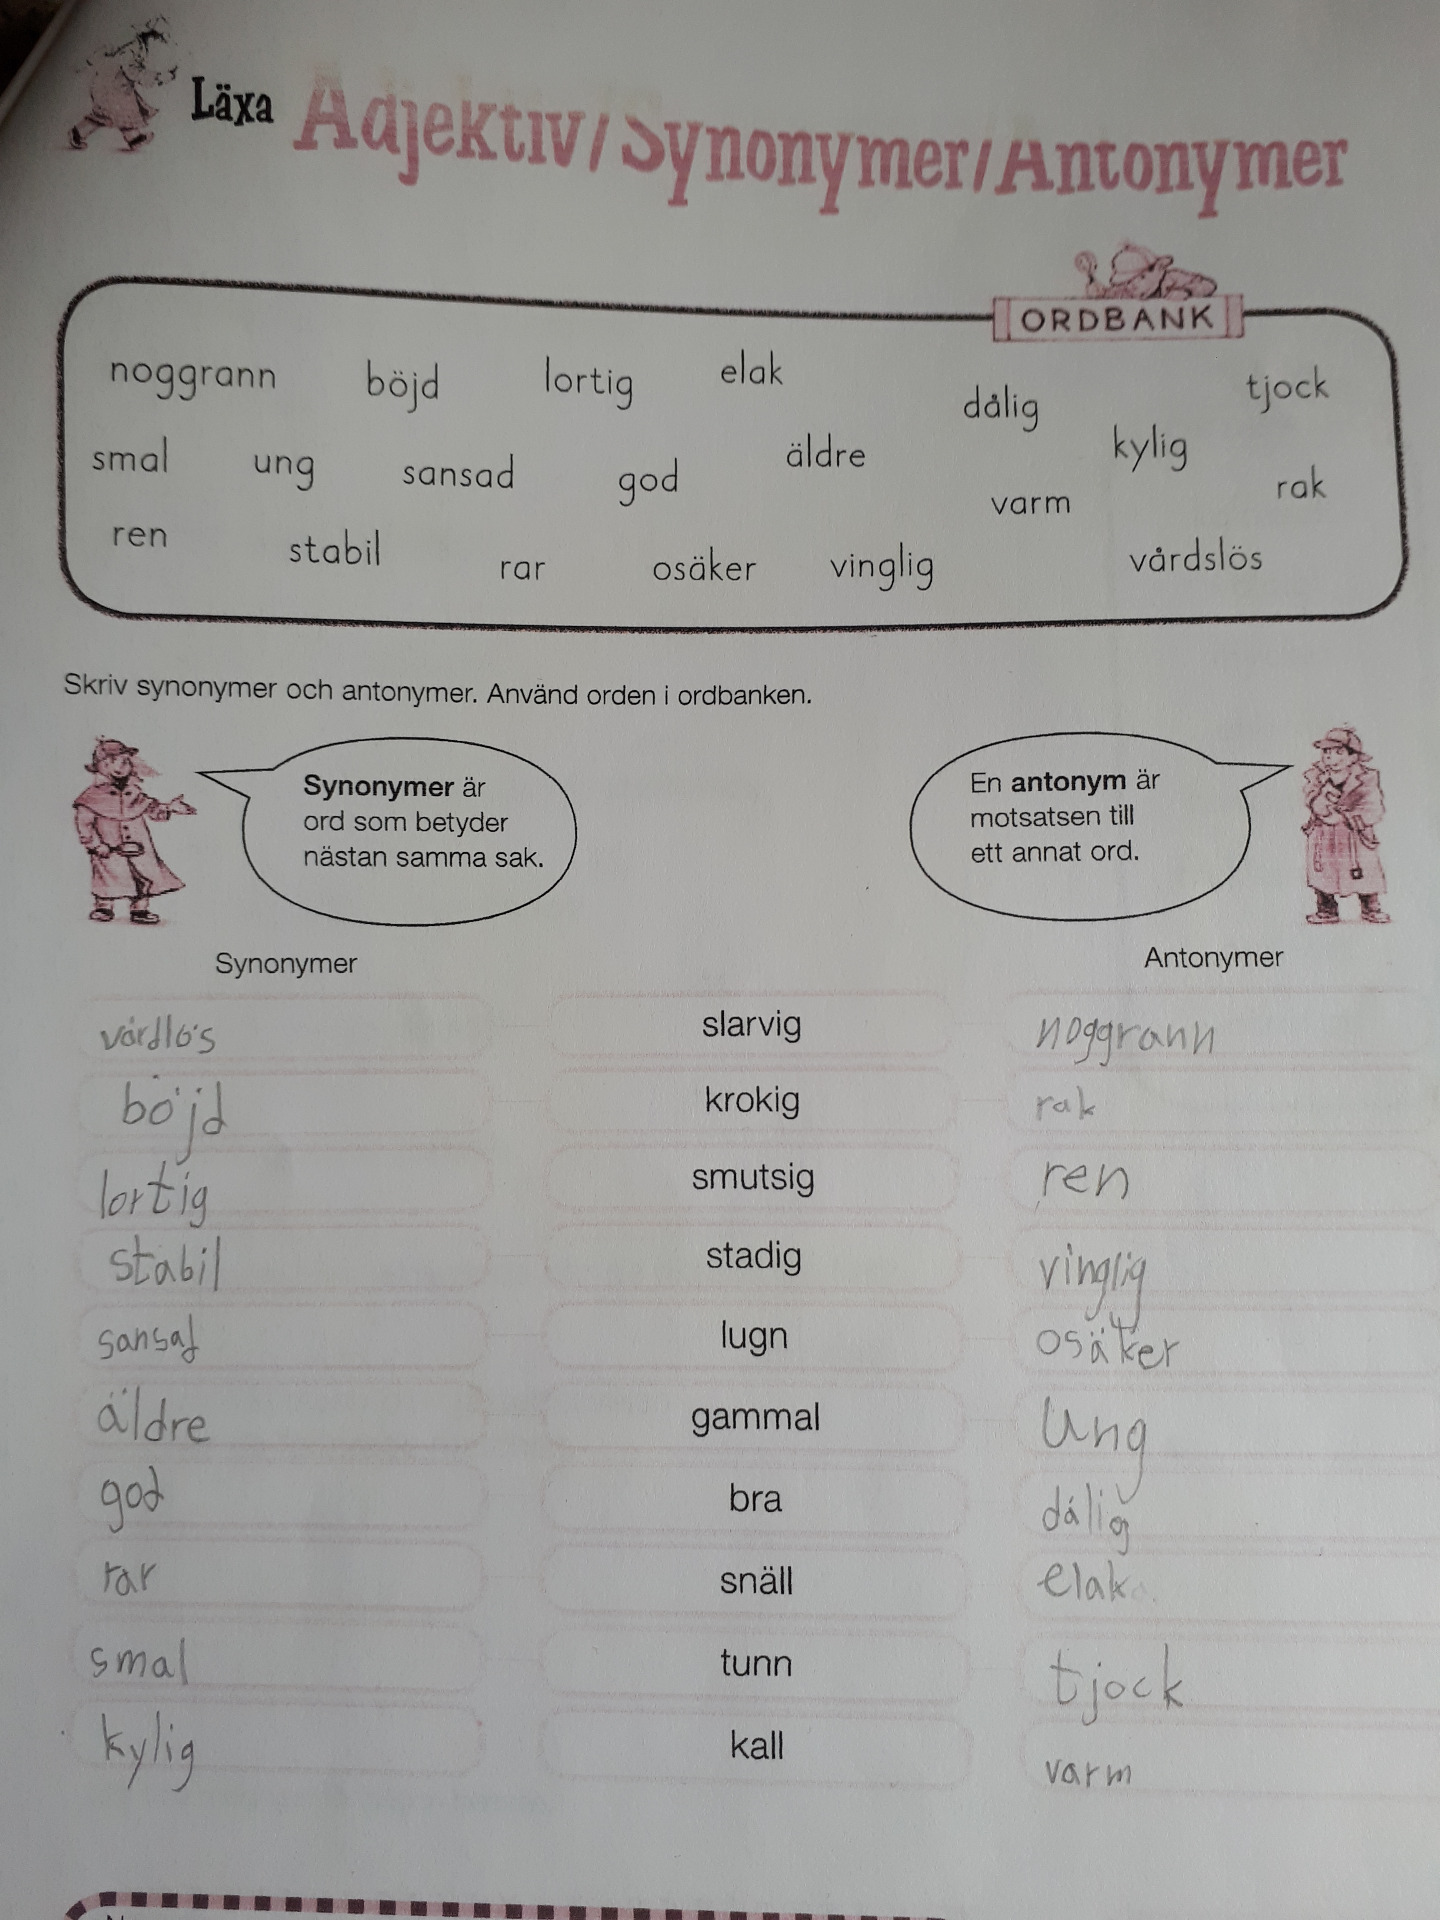 Läxa Adjektiv/Synonymer/Antonymer
ORDBANK
noggrann böjd lortig elak dålig tjock
smal ung sansad god äldre varm kylig rak
ren stabil rar osäker vinglig vårdslös
Skriv synonymer och antonymer. Använd orden i ordbanken.
Synonymer är
ord som betyder
nästan samma sak.
En antonym är
motsatsen till
ett annat ord.
Synonymer Antonymer
vårdlös slarvig noggrann
böjd krokig rak
lortig smutsig ren
stabil stadig vinglig
sansad lugn osäker
äldre gammal Ung
god bra dålig
rar snäll elak
smal tunn tjock
kylig kall varm